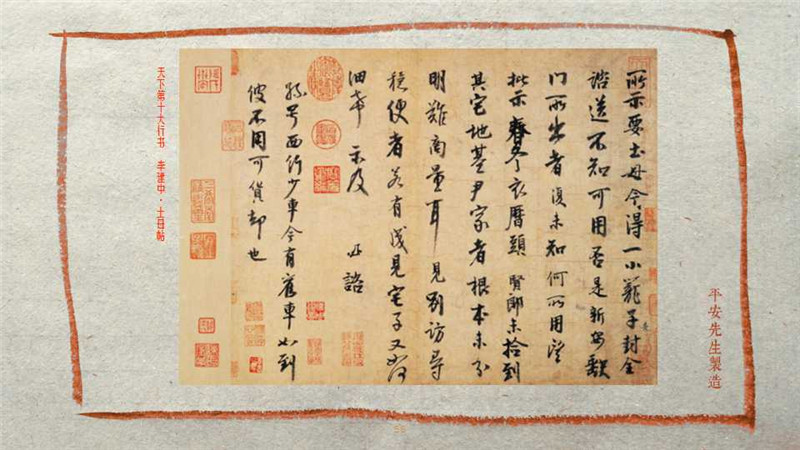 所示要土母今得一小籠子封全
諮送不知可用否是新安缺
門所出者復未知何所用望
批示春冬衣曆頭賢郎未撿到
其宅地基尹家者根本未分
明難商量耳見別訪尋
穩便者若有成見宅子又如何
細希示及 諮
孫号西行少車今有舊車如到
彼不用可貨却也
天下第十大行书 李建中·土母帖
平安先生製造